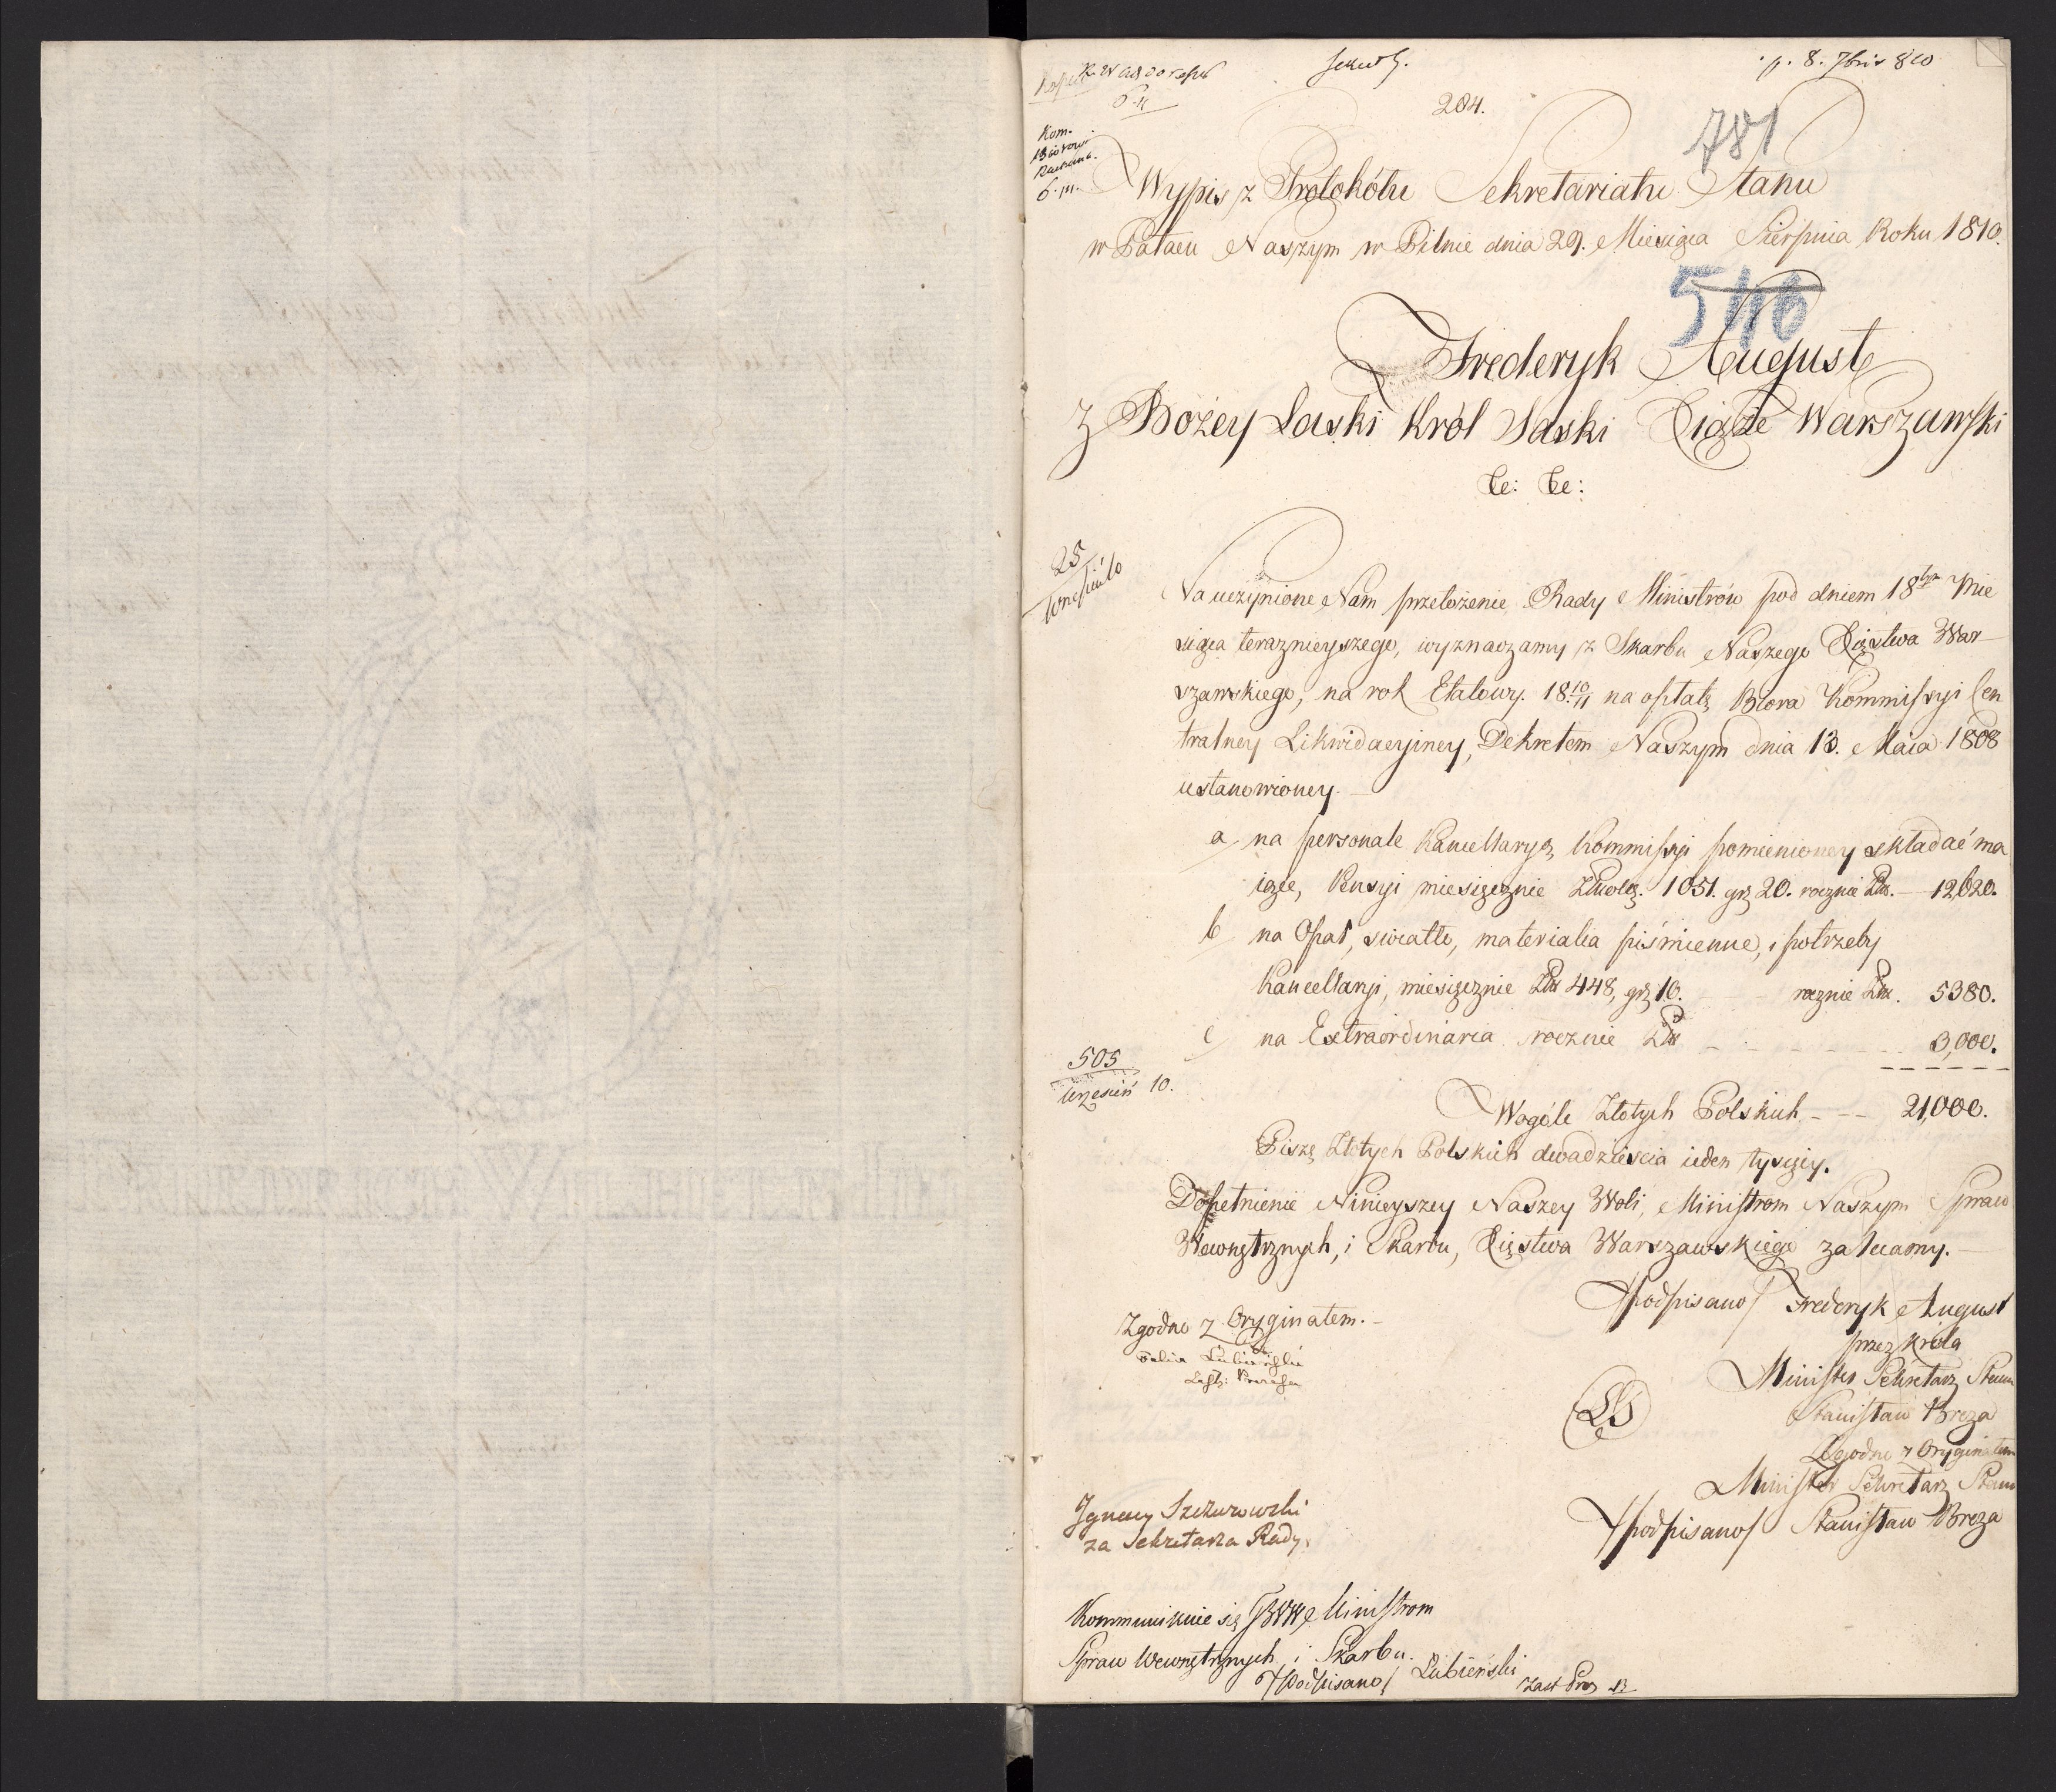 p. 8. 7bris 810
204.
781
Wypis z Protokółu Sekretariatu Stanu
w Pałacu Naszym w Pilnie dnia 29. Miesiąca Sierpnia Roku 1810.
546
Frederyk August
z Bożey Łaski Król Saski Xiąże Warszawski
&c: &c:
25
Września
Na uczynione Nam przełożenie Rady Ministrów pod dniem 18tym Mie
siąca teraznieyszego, wyznaczamy z Skarbu Naszego Xięstwa War
szawskiego, na rok Etatowy 18 10/11 na opłatę Biora Kommissyi Cen
tralney Likwidacyiney, Dekretem Naszym dnia 13. Maia 1808
ustanowioney.
a/ na personale Kancellaryą Kommissyi pomienioney składać ma
iące, Pensyi miesięcznie Złwołą. 1051. gr 20. rocznie Złt. — 12,620.
b/ na Opał, swiatło, materialia piśmienne, i potrzeby
Kancellaryi, miesięcznie Złt 448, gr 10. rocznie Złt. 5380.
c/ na Extraordinaria rocznie Złt 3,000.
505
Wrzesień 10.
Wogóle Złotych Polskich - - - 21,000.
Piszę Złotych Polskich dwadzieścia ieden tysięcy.
Dopełnienie Ninieyszey Naszey Woli, Ministrom Naszym Spraw
Wewnętrznych, i Skarbu, Xięstwa Warszawskiego zalecamy.
/podpisano/ Frederyk August
przez Króla
Zgodno z Oryginałem.
Minister Sekretarz Stanu
LS
Stanisław Breza
Zgodno z Oryginałem
Minister Sekretarz Stanu
/podpisano/ Stanisław Breza
Ignacy Szczurowski
za Sekretarza Rady.
Kommunikuie się JWW Ministrom
Spraw Wewnętrznych i Skarbu.
/podpisano/ Łubieński
Zast Prez